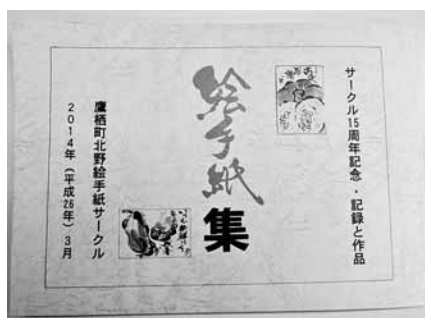 サークル15周年記念・記録と作品
絵手紙集
鷹栖町北野絵手紙サークル
2014年(平成26年)3月